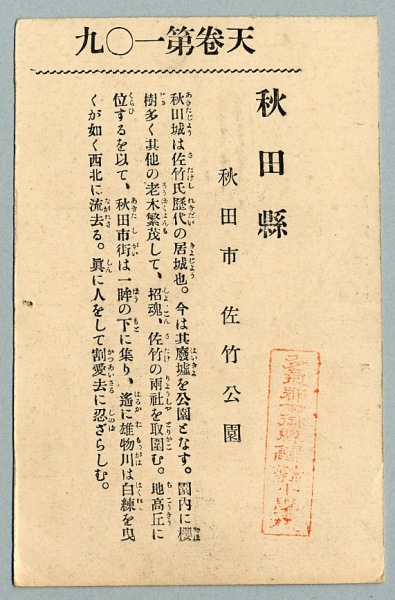 天卷第一〇九
秋田縣
秋田市 佐竹公園
秋田城は佐竹氏歷代の居城也。今は其廢墟を公園となす。園內に櫻
樹多く其他の老木繁茂して、招魂、佐竹の兩社を取圍む。地高丘に
位するを以て、秋田市街は一眸の下に集り、遙に雄物川は白練を曳
くが如く西北に流去る。眞に人をして割愛去に忍ざらしむ。